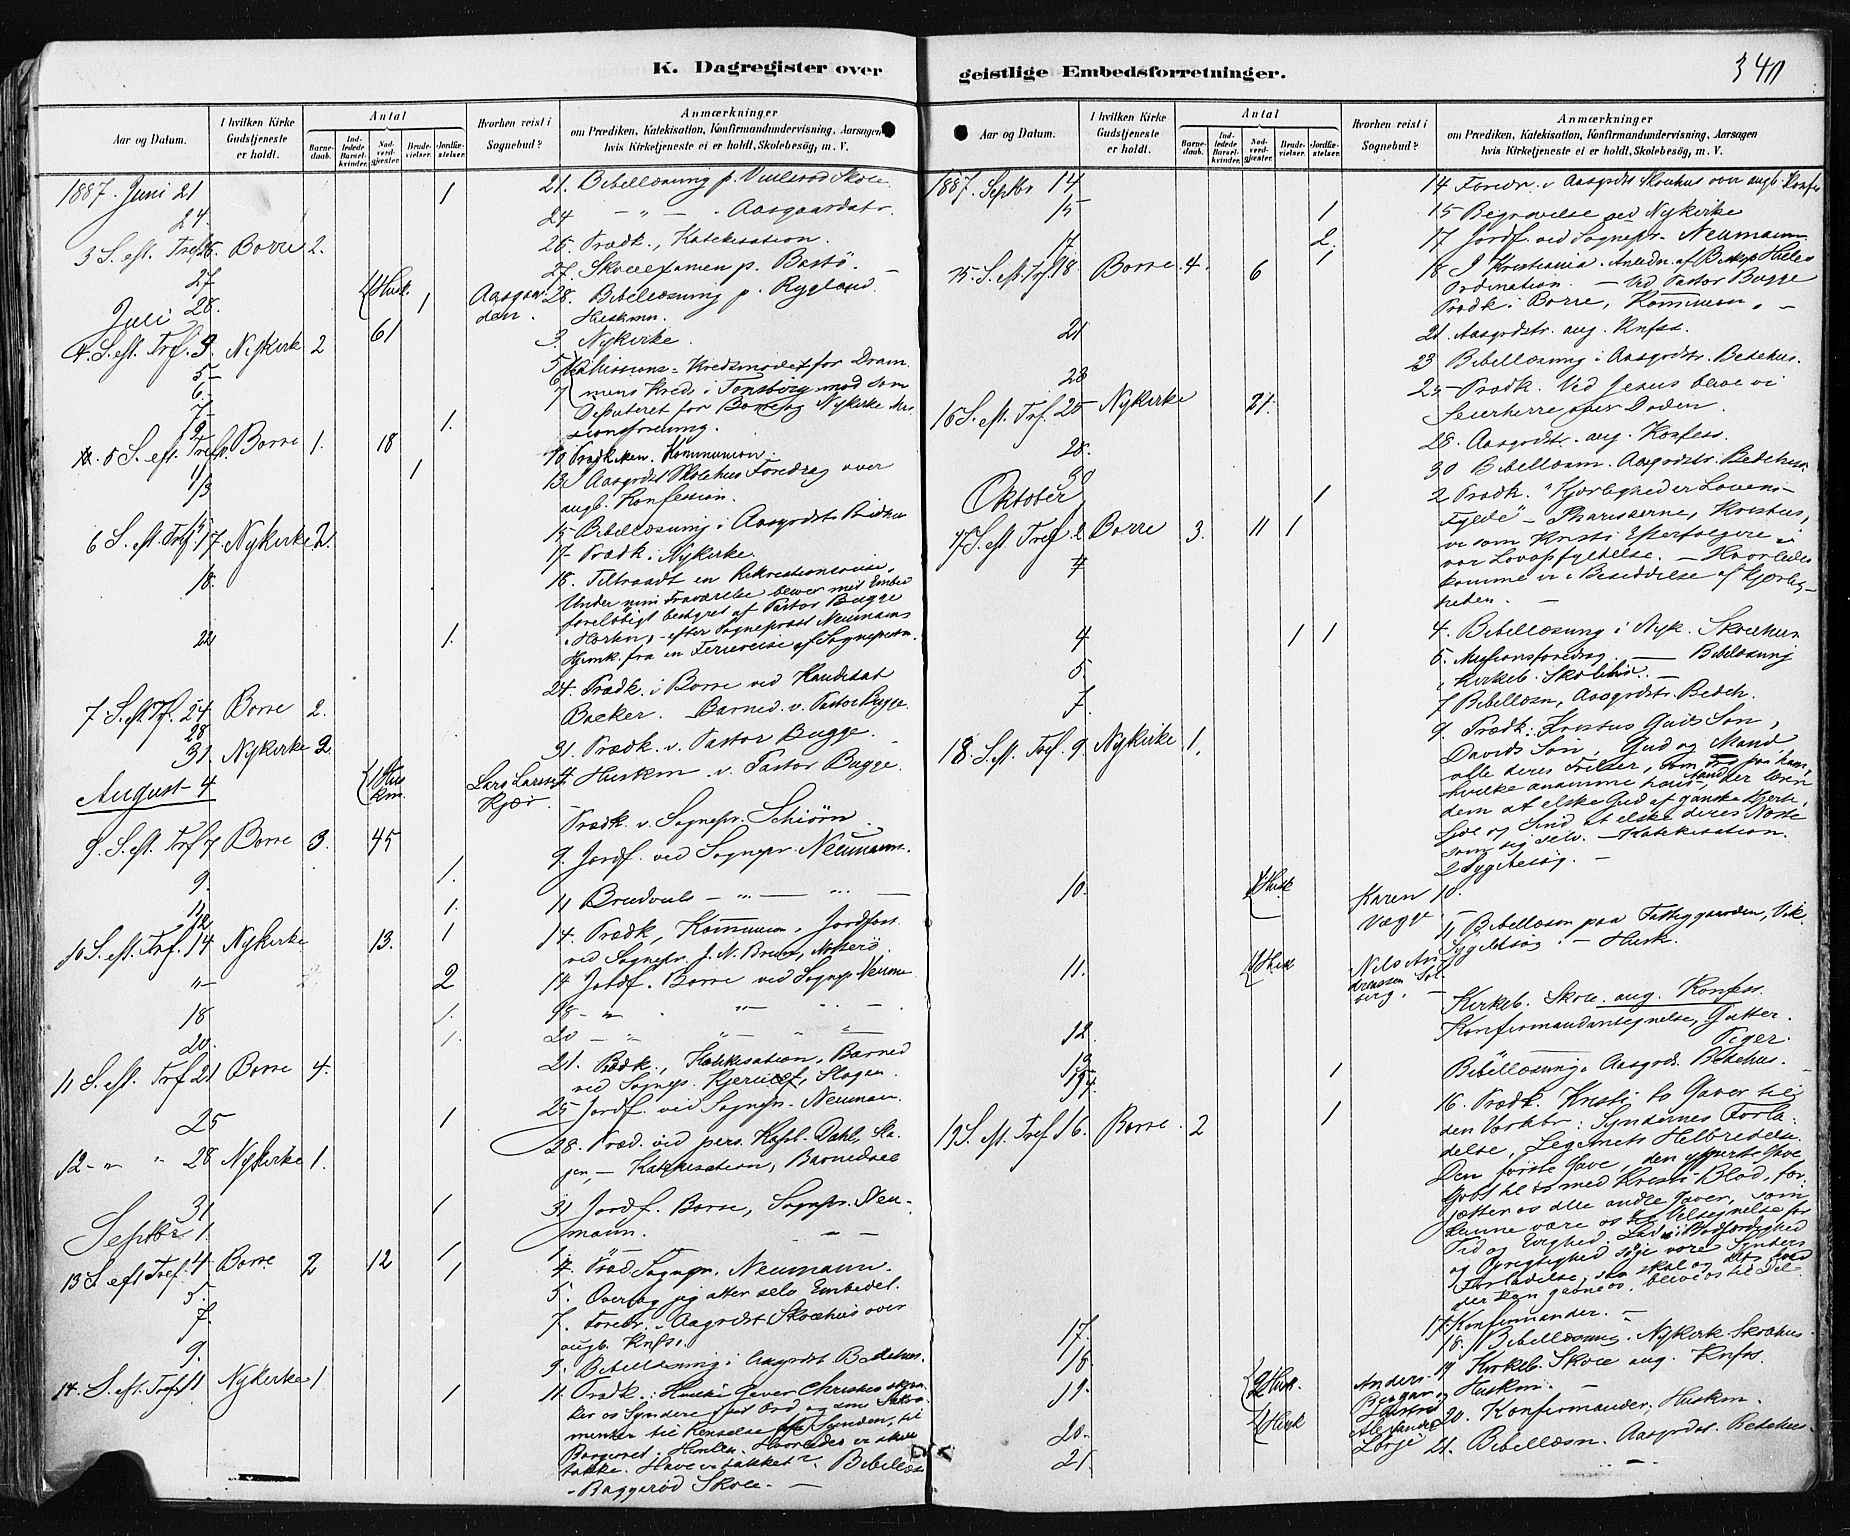 K. Dagregister over
Aar og Datum.
I hvilken Kirke Gudstjeneste er holdt.
Antal
Barnedaab.
Indledede Barselkvinder.
Nadverdgjester.
Brudevielser.
Jordfæstelser.
Hvorhen reist i Sognebud?
Anmærkninger
om Prædiken, Katekisation, Konfirmandundervisning, Aarsagen
hvis Kirketjeneste ei er holdt, Skolebesøg, m. V.
1887. Juni 21 1 21. Bibellæsning p. Skole
24. 24 — " — Aasgaardstr.
3 S. eft. Tref. 26. Borre 2. 26. Prædk., Katekisation.
27 27. Skoleexamen p. Bastö.
28. 1 Husk. 1 Aasgaarden. 28. Bibellæsning p. Rygland.
Huskmn.
Juli
4. S. eft. Tref. 3 Nykirke 2 61 3. Nykirke.
5 5 Missions-Kredsmødet for Dram-
6. 6 mens Kred i Tønsberg mød som
7 7 Deputeret for Borre og Nykirke Mis-
sionsforening.
9 1.
5 S. eft. Tref. Borre 1. 18 10 Prædk. Kommunion.
1
13 13 Aasgrdstr Skolehus Foredrag over
augb. Konfession.
15 15 Bibellæsning i Aasgrdstr. Bedehus
6 S. eft. Tref. 17. Nykirke 2. 17 Prædk. i Nykirke.
18. 18. Tiltraadt en Rekreationsreise.
Under min Fraværelse blever mit Embed
foreløbigt bestyret af Pastor Bugge
i Horten, efter Sogneprest Neumanns
Hjemk. fra en Feriereise af Sogneprestn.
22 1.
7 S. eft. Tf. 24 Borre 2. 24. Prædk. i Borre ved Kandidat
Backer. Barned. v. Pastor Bugge.
28
31. Nykirke 2. 31. Prædk. v. Pastor Bugge.
August 4 1 Huskm. Lars Larsen Kjær. 4 Huskm. v. Pastor Bugge.
9. S. eft. Tref 7 Borre 3. 45 Prædk. v. Sognepr. Schiörn.
9. 1. 9. Jordf. ved Sognepr. Neumann.
11 1. 11 Brudvisls — " — " —
12 1
10 S. eft. Tref. 14 Nykirke 13. 14. Prædk, Kommunion, Jordfæst.
ved Sognepr. J. N. Brun, Nøtterö.
" 2 14 Jordf. Borre ved Sognepr Neuma
18 1. 18 - " — " —
20. 1. 20 — " " " —
11 S. eft. Tref 21 Borre 4. 21. Prædk., Katekisation, Barned
ved Sognepr. Kjerulf, Slagen.
25 1 25 Jordf. ved Sognepr. Neuman.
12 - " " 28 Nykirke 1. 28. Præd. ved pers. Kapl. Dahl, Sla-
gen, — Katekisation, Barnedaab
31 1 31 Jordf. Borre, Sognepr. Neu-
mann. — —
Septbr 1 1 1.
13 S. eft Tref. 4 Borre 2 12 1 4. Præd Sognepr. Neumann.
5. 5. Overtog jeg atter selv Embedet.
7. 7. Foredr. i Aasgrdst Skolehus over
augb. Knfs.
9. 9. Bibellæsning i Aasgrdst Bedehus.
14. S. eft. Tref 11 Nykirke 1 1 11. Prædk.: Hvilke Gaver Christus skjæn-
ker os Syndere i sit Ord og sine Sakra-
menter til Renselse fra Synden, til
Borgerret i Himlen. Hvorledes vi skulle
takke. Have vi takket? Bibellæs
- Baggerød Skole. —
geistlige Embedsforretninger.
340
Aar og Datum.
I hvilken Kirke Gudstjeneste er holdt.
Antal
Barnedaab.
Indledede Barselkvinder.
Nadverdgjester.
Brudevielser.
Jordfæstelser.
Hvorhen reist i Sognebud?
Anmærkninger
om Prædiken, Katekisation, Konfirmandundervisning, Aarsagen
hvis Kirketjeneste ei er holdt, Skolebesøg, m. V.
1887. Septbr 14 14 Foredr. i Aasgrdstr Skolehus over augb. Konfes
15 1 15 Begravelse ved Nykirke
17 2. 17 Jordf. ved Sognepr. Neumann.
15. S. eft. Tref. 18 Borre 4. 6 1 18 I Kristiania. Anledn. af Biskop
Ordination. — Ved Pastor Bugge
Prædk. i Borre, Kommunion. —
21 21. Aasgrdstr. aug. Knfss.
23 23 Bibellæsning i Aasgrdstr. Bedehus.
16 S. eft. Tref. 25 Nykirke 21. 25 Prædk. Ved Jesus blive vi
Seierherre over Döden.
28. 28. Aasgrdstr. aug. Konfess.
30 30 Bibellæsn. Aasgrdstr. Bedehus
Oktober
17 S. eft. Tref 2 Borre 3. 11 1 1 2 Prædk. "Kjærlighed er Lovens
Fylde" — Pharisæerne, Kristus,
vi som Kristi Efterfølgere i
vor Lovopfyldelse. — Hvorledes
komme vi i Besiddelse af Kjærlig-
heden. —
4 1 1 4. Bibellæsning i Nyk. Skolehus
5. 5. Missionsforedrag. — Bibellæsning
i Kirkeb. Skolehus. —
7. 7 Bibellæsn, Aasgrdstr. Bedeh.
18. S. eft. Tref. 9. Nykirke 1. 9. Prædk: Kristus Guds Sön,
Davids Sön, Gud og Mand,
alle deres Frelser, som tro paa ham,
hvilke anamme hans Aand, der lærer
dem at elske Gud af ganske Hjerte,
Sjæl og Sind, at elske deres Næste
som sig selv. — Katekisation.
2 Sygebesög. —
10. 1 Husk Karen Vægt 10.
11. 1 Husk Nils Andreassen Solberg. 11 Bibellæsn paa Fattiggaarden, Vik.
Sygebesög. — Husk.
Kirkeb. Skole. aug. Konfess.
12. Konfirmandantegnelse, Gutter.
Piger.
13 1 Bibellæsning. Aasgrds. Bedehus.
14.
19 S. eft. Tref 16. Borre 2 1 16. Prædk. Kristi to Gaver til
den Værkbr: Syndernes Forla-
delse, Legemets Helbredelse.
Den förste Gave, den ypperste Gave
kjöbt til os med Kristi Blod, for-
jætter os alle andre Gaver, som
kunne være os til Velsignelse for
Tid og Evighed. Lad i Bodfærdighed
og Oprigtighed söge vore Synders
Forladelse, saa skal og alt, hvad
der kan gavne os, blive os til Del.
17. 17. Konfirmander. —
18. 18. Bibellæsning. Nykirk Skolehus.
19. 2 Husk. Anders Bergan og 19 Kirkeb. Skole aug. Knfss.
Huskm. —
20. 1 Husk 20. Konfirmander, Huskm.
21. 21. Bibellæsn. Aasgrdst. Bedehus.